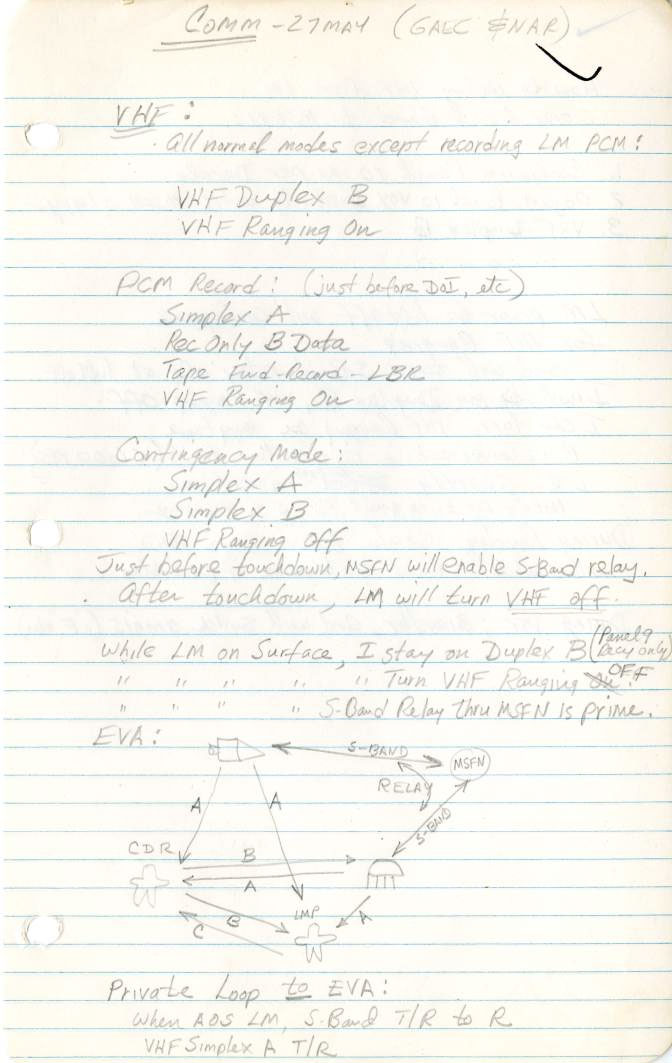 Comm - 27 MAY (GAEC & NAR)
VHF:
. All normal modes except recording LM PCM:
VHF Duplex B
VHF Ranging On
PCM Record: (just before DOI, etc)
Simplex A
Rec Only B Data
Tape Fwd-Record-LBR
VHF Ranging On
Contingency Mode:
Simplex A
Simplex B
VHF Ranging Off
Just before touchdown, MSFN will enable S-Band relay.
. After touchdown, LM will turn VHF off.
While LM on Surface, I stay on Duplex B (Panel 9 Relay only)
" " " " " Turn VHF Ranging on. OFF
" " " " S-Band Relay thru MSFN is prime.
EVA:
S-BAND
MSFN
RELAY
A
A
S-BAND
CDR
B
A
A
B
C
LMP
Private Loop to EVA:
When AOS LM, S-Band T/R to R
VHF Simplex A T/R